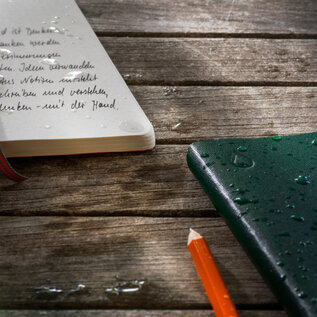 d ist Denken.
anken werden
erinnerungen
en. Ideen verwandeln
Aus Notizen entsteht
chreiben und verstehen,
denken - mit der Hand.